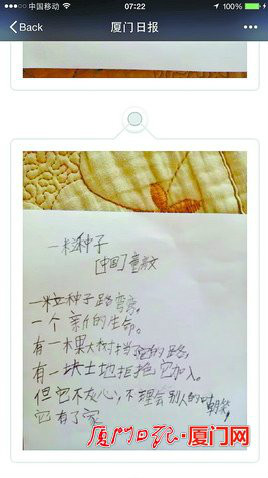 中国移动 07:22 100%
Back 厦门日报
一粒种子
[中国]童
一粒种子路弯弯,
一个新的生命。
有一棵大树挡了它的路,
有一块土地拒绝它加入。
但它不灰心,不理会别人的嘲
它有了家
厦门日报·厦门网